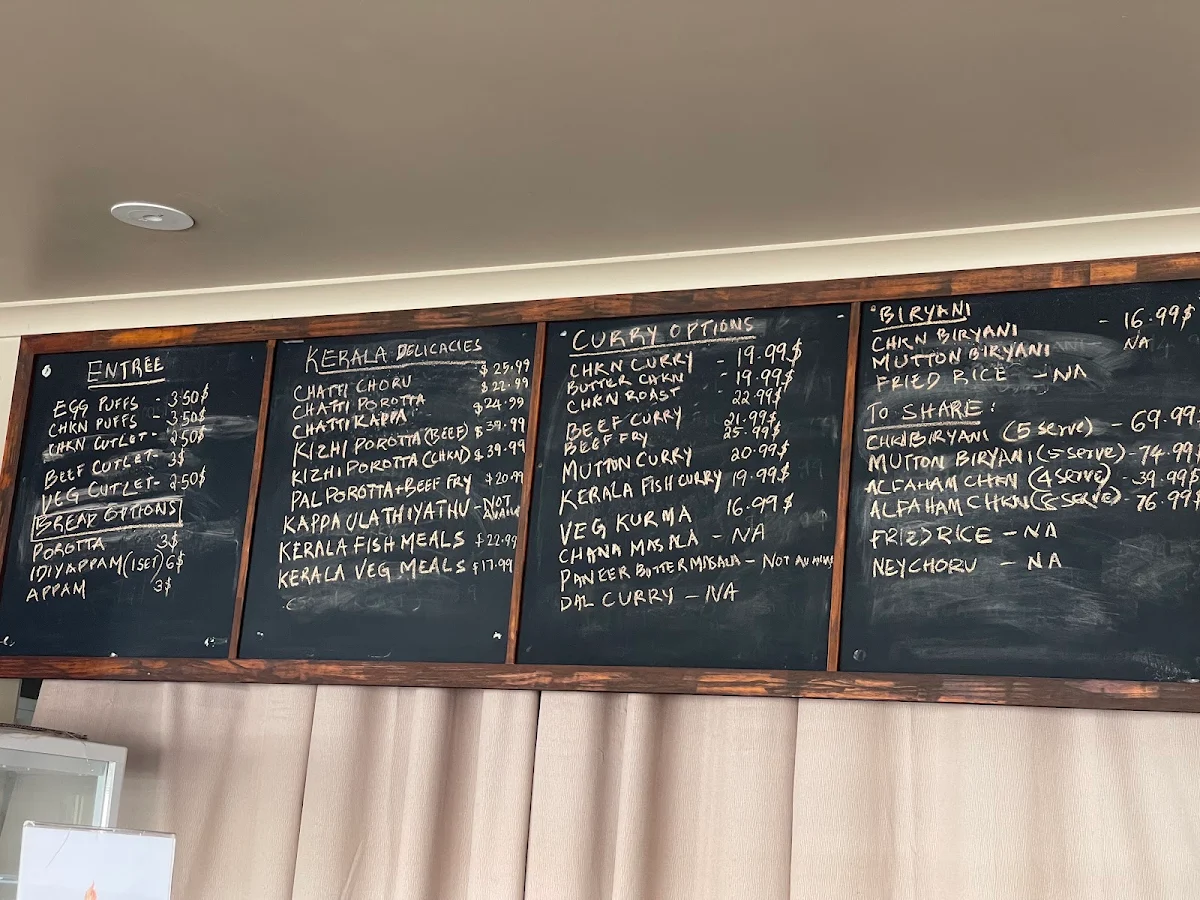 ENTRÉE
EGG PUFFS - 3.50$
CHKN PUFFS - 3.50$
CHKN CUTLET - 2.50$
BEEF CUTLET - 3$
VEG CUTLET - 2.50$
BREAD OPTIONS
POROTTA 3$
IDIYAPPAM (1SET) 6$
APPAM 3$
KERALA DELICACIES
CHATTI CHORU $25.99
CHATTI POROTTA $22.99
CHATTI KAPPA $24.99
KIZHI POROTTA (BEEF) $39.99
KIZHI POROTTA (CHKN) $39.99
PAL POROTTA + BEEF FRY $20.99
KAPPA ULATHIYATHU - NOT
KERALA FISH MEALS $22.99
KERALA VEG MEALS $17.99
CURRY OPTIONS
CHKN CURRY - 19.99$
BUTTER CHKN - 19.99$
CHKN ROAST 22.99$
BEEF CURRY 21.99$
BEEF FRY 25.99$
MUTTON CURRY 20.99$
KERALA FISH CURRY 19.99$
VEG KURMA 16.99$
CHANA MASALA - NA
PANEER BUTTER MASALA - NOT
DAL CURRY - NA
BIRYANI
CHKN BIRYANI - 16.99$
MUTTON BIRYANI NA
FRIED RICE - NA
TO SHARE:
CHKN BIRYANI (5 serve) - 69.99
MUTTON BIRYANI (5 serve) - 74.99$
ALFAHAM CHKN (4 serve) - 39.99$
ALFAHAM CHKN - 76.99$
FRIED RICE - NA
NEYCHORU - NA